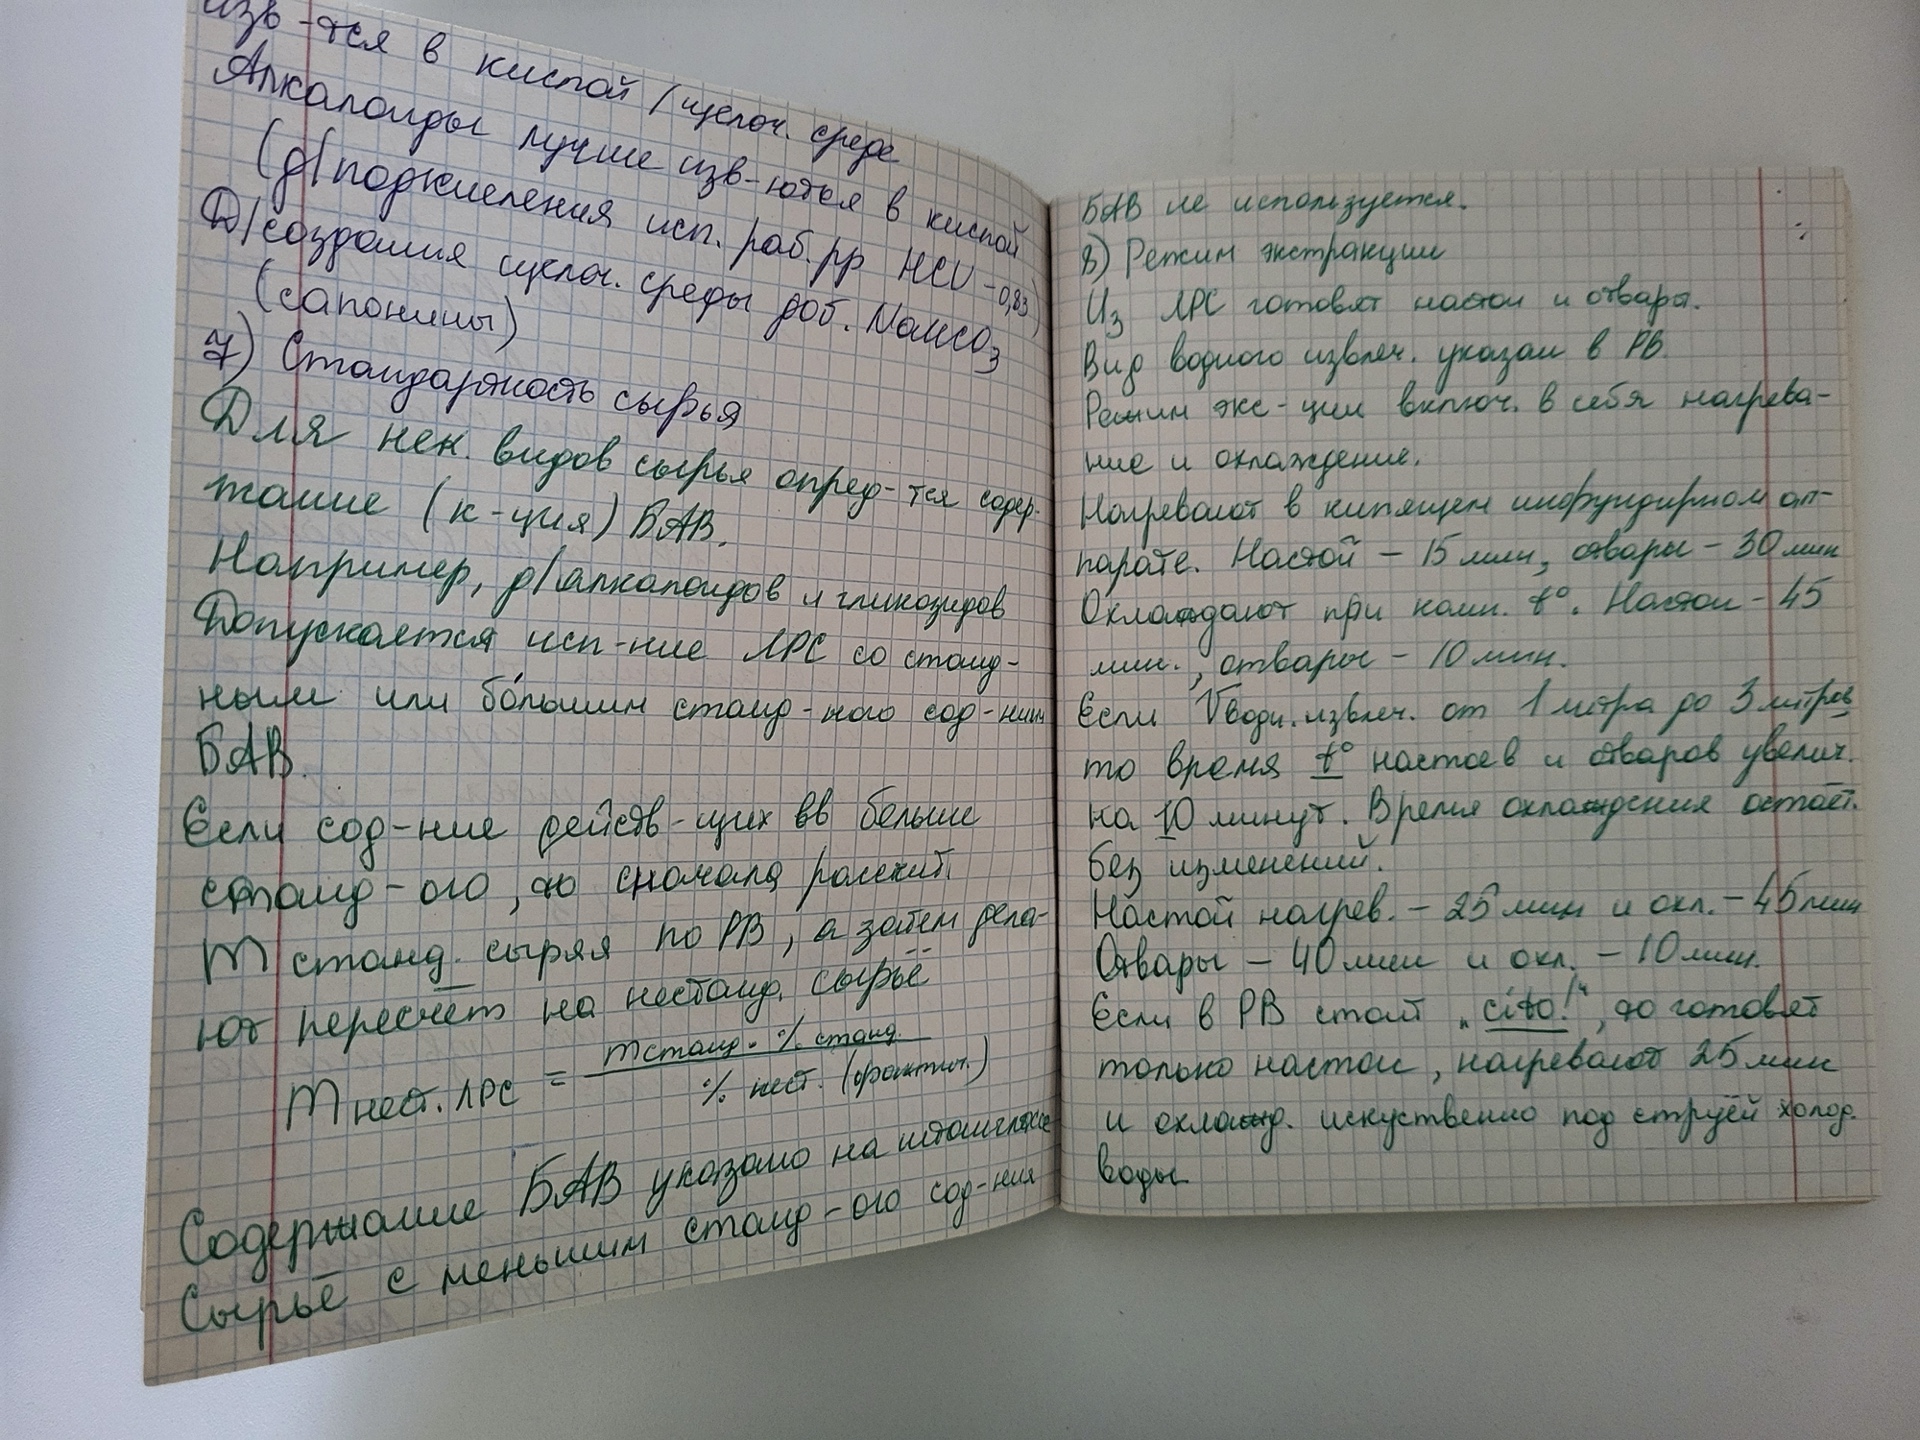 изв-тся в кислой / щелоч. среде
Алкалоиды лучше изв-ются в кислой
(д/подкисления исп. раб. рр HCl - 0,83)
Д/создания щелоч. среды доб. NaHCO3
(сапонины)
7) Стандартность сырья
Для нек. видов сырья опред-тся содер-
жание (к-ция) БАВ.
Например, д/алкалоидов и гликозидов
Допускается исп-ние ЛРС со станд-
ным или бо́льшим станд-ного сод-нием
БАВ.
Если сод-ние действ-щих вв больше
станд-ого, то сначала расчит.
m станд. сырья по РВ, а затем дела-
ют пересчёт на нестанд. сырьё
m нест. ЛРС = m станд. · % станд. / % нест. (фактич.)
Содержание БАВ указано на штангласе
Сырьё с меньшим станд-ого сод-ния
БАВ не используется.
8) Режим экстракции
Из ЛРС готовят настои и отвары.
Вид водного извлеч. указан в РВ.
Режим экс-ции включ. в себя нагрева-
ние и охлаждение.
Нагревают в кипящем инфундирном ап-
парате. Настой - 15 мин, отвары - 30 мин
Охлаждают при комн. t°. Настои - 45
мин., отвары - 10 мин.
Если V водн. извлеч. от 1 литра до 3 литров
то время t° настоев и отваров увелич.
на 10 минут. Время охлаждения остаёт.
без изменений.
Настой нагрев. - 25 мин и охл. - 45 мин
Отвары - 40 мин и охл. - 10 мин.
Если в РВ стоит „cito!“, то готовят
только настои, нагревают 25 мин
и охлажд. искуственно под струёй холод.
воды